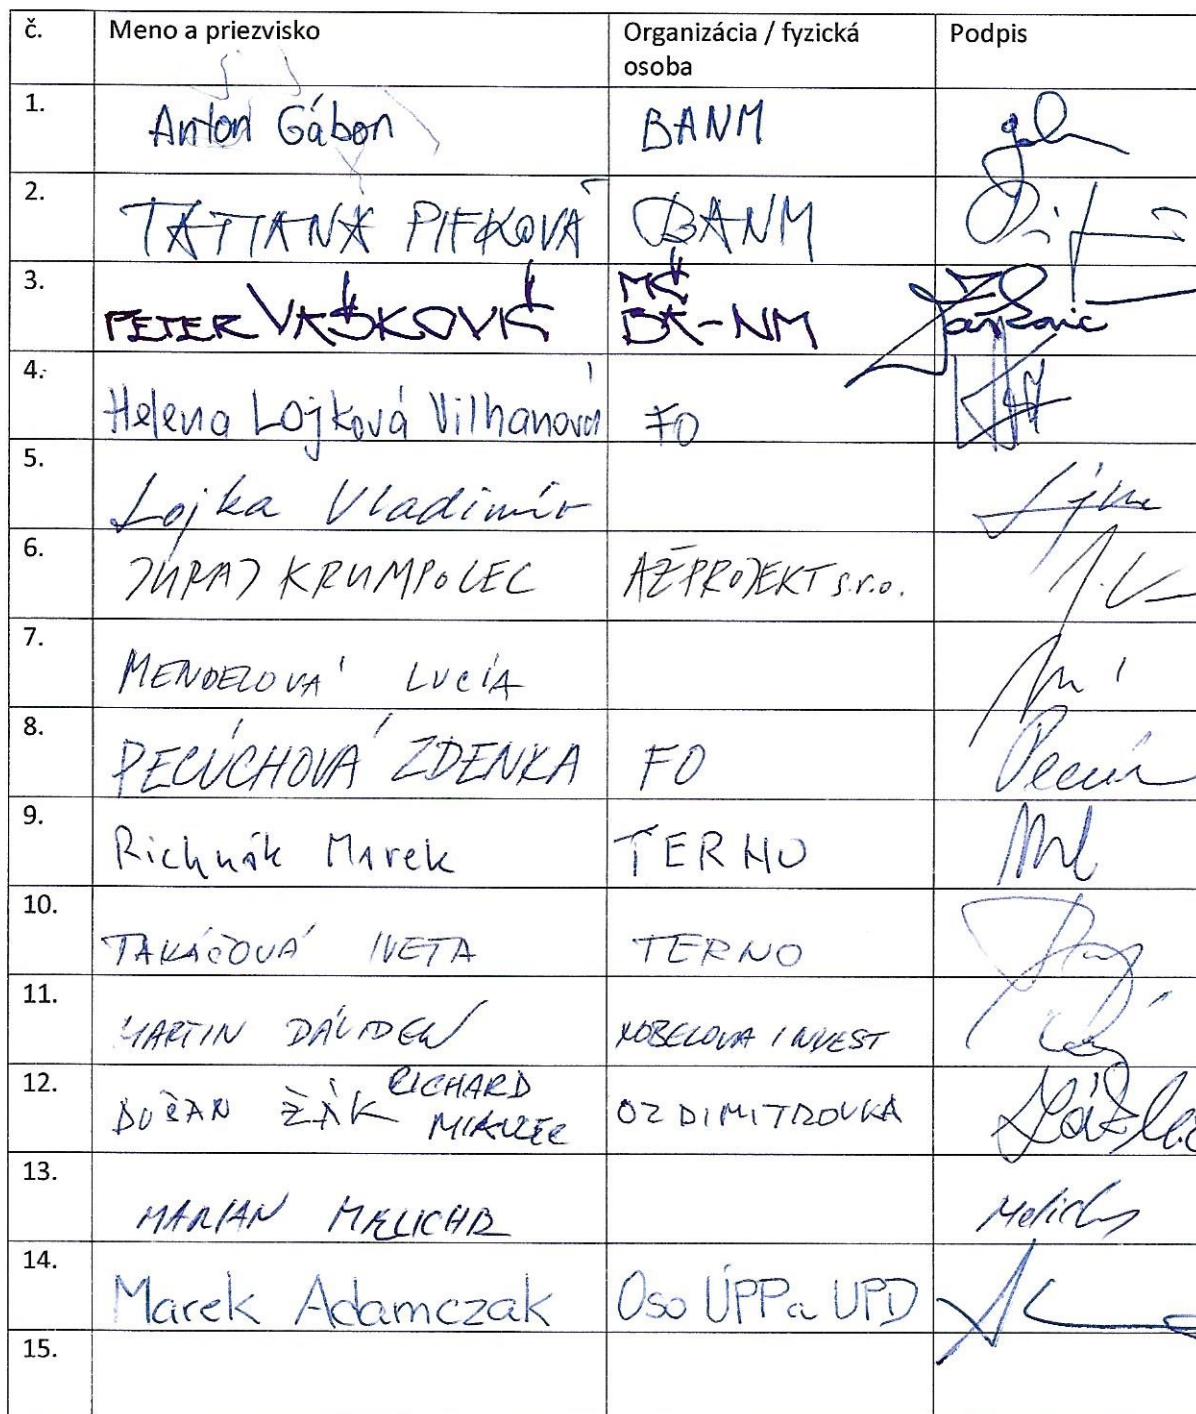 č. Meno a priezvisko Organizácia / fyzická osoba Podpis
1. Anton Gábon BANM
2. TATIANA PIFKOVÁ BANM
3. PETER VAŠKOVIČ MČ BA-NM
4. Helena Lojková Vilhanová FO
5. Lojka Vladimír
6. JURAJ KRUMPOLEC AŽPROJEKT s.r.o.
7. MENDELOVÁ LUCÍA
8. PECÚCHOVÁ ZDENKA FO
9. Richnák Marek TERNO
10. TAKÁČOVÁ IVETA TERNO
11. MARTIN NOBELOVA INVEST
12. DUŠAN ŽÁK RICHARD OZ DIMITROVKA
13. MARIAN MELICHR Melichr
14. Marek Adamczak Oso ÚPP a UPD
15.